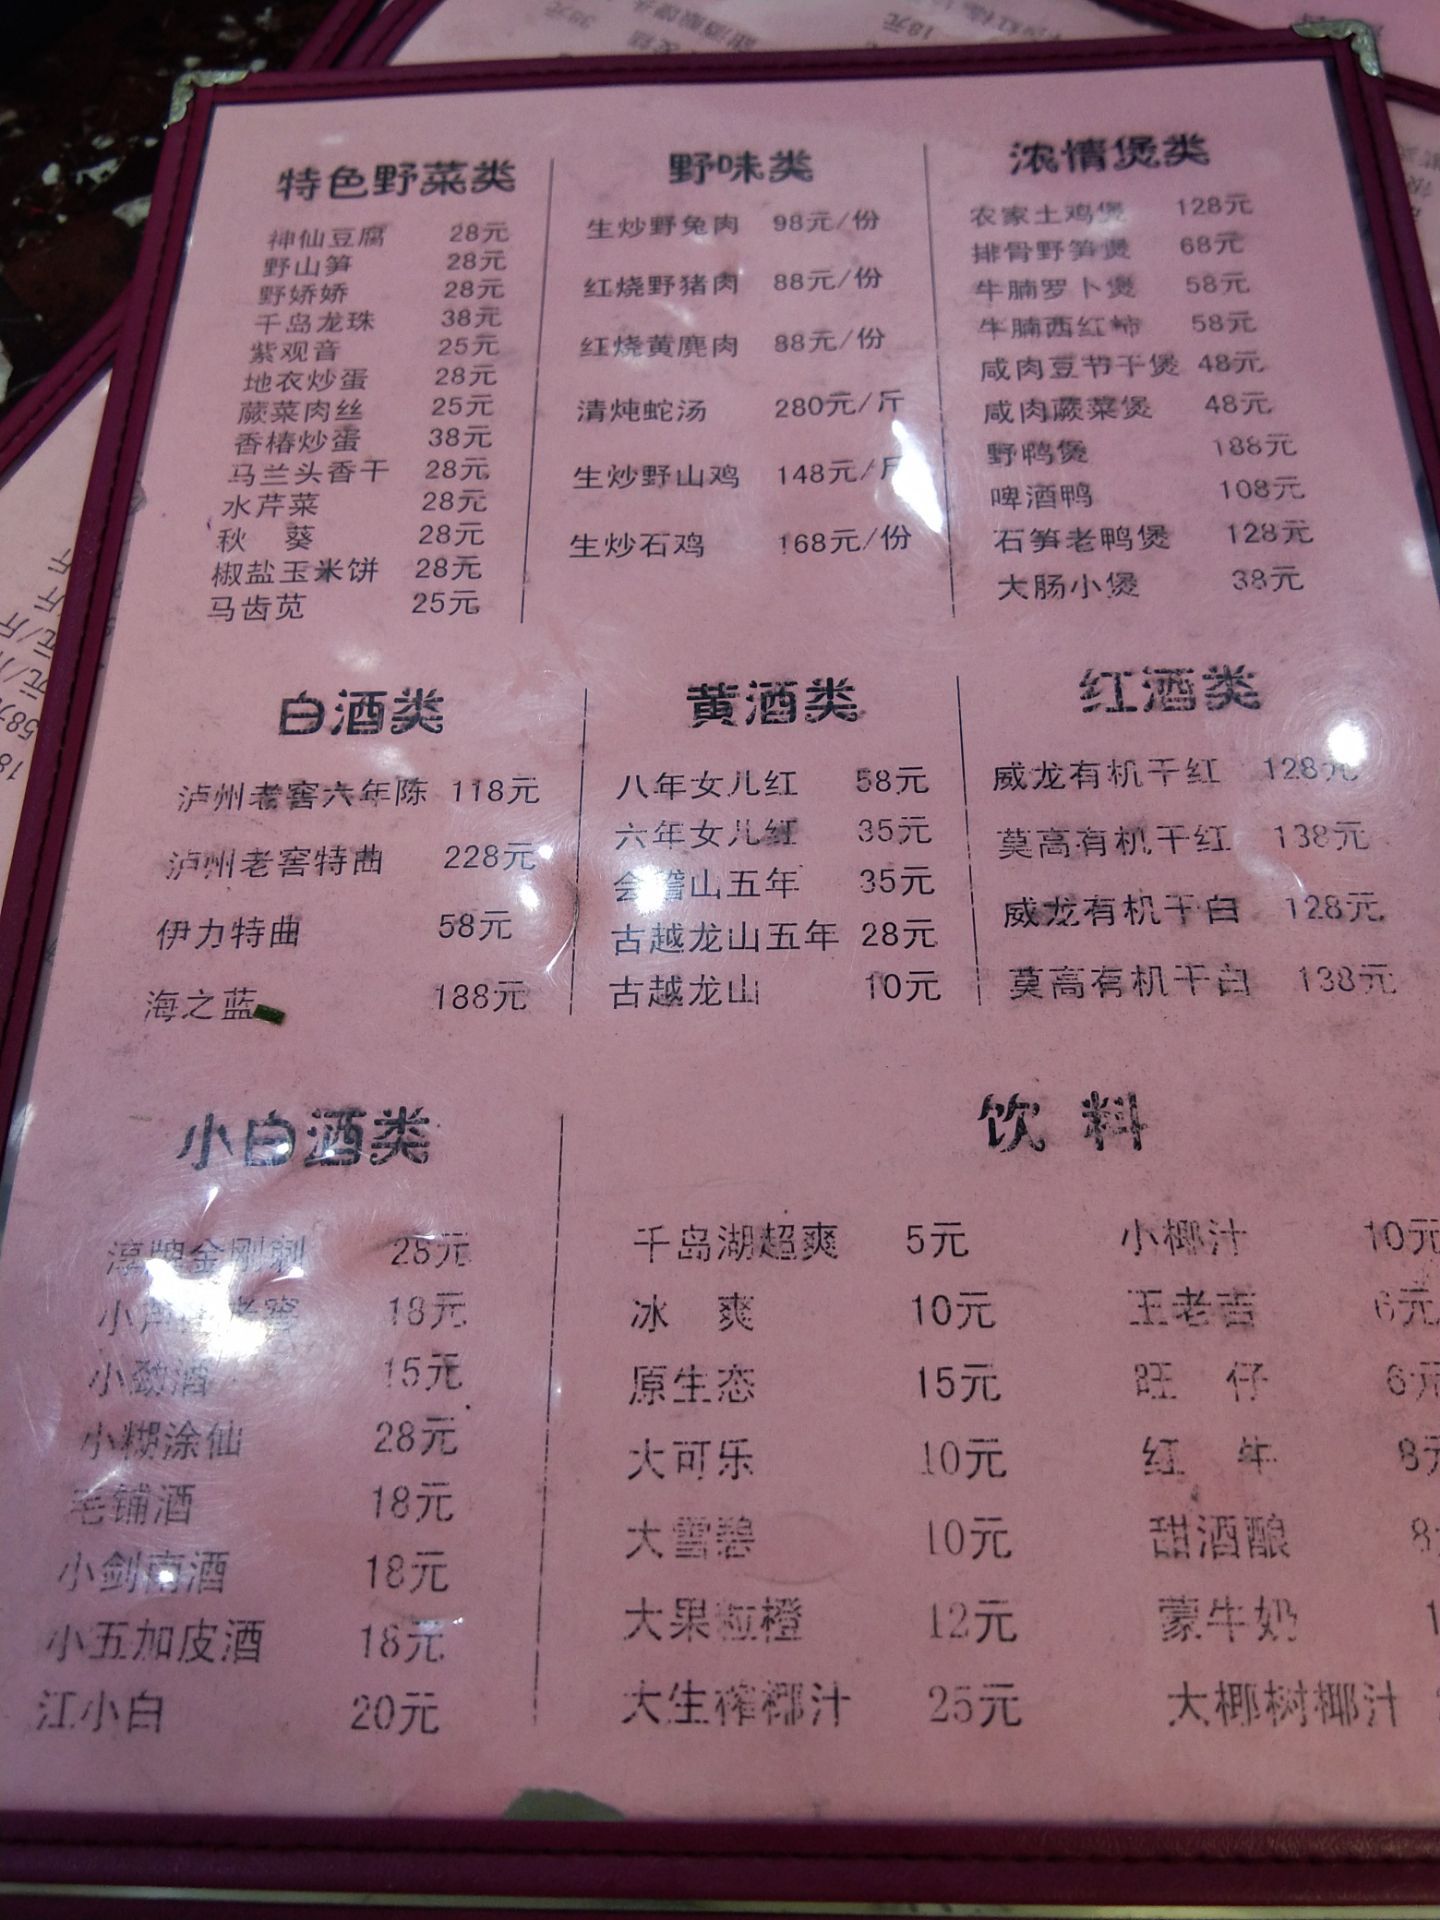 特色野菜类
神仙豆腐 28元
野山笋 28元
野娇娇 28元
千岛龙珠 38元
紫观音 25元
地衣炒蛋 28元
蕨菜肉丝 25元
香椿炒蛋 38元
马兰头香干 28元
水芹菜 28元
秋 葵 28元
椒盐玉米饼 28元
马齿苋 25元
野味类
生炒野兔肉 98元/份
红烧野猪肉 88元/份
红烧黄麂肉 88元/份
清炖蛇汤 280元/斤
生炒野山鸡 148元/斤
生炒石鸡 168元/份
浓情煲类
农家土鸡煲 128元
排骨野笋煲 68元
牛腩罗卜煲 58元
牛腩西红柿 58元
咸肉豆节干煲 48元
咸肉蕨菜煲 48元
野鸭煲 188元
啤酒鸭 108元
石笋老鸭煲 128元
大肠小煲 38元
白酒类
泸州老窖六年陈 118元
泸州老窖特曲 228元
伊力特曲 58元
海之蓝 188元
黄酒类
八年女儿红 58元
六年女儿红 35元
会稽山五年 35元
古越龙山五年 28元
古越龙山 10元
红酒类
威龙有机干红 128元
莫高有机干红 138元
威龙有机干白 128元
莫高有机干白 138元
小白酒类
28元
18元
小劲酒 15元
小糊涂仙 28元
毛铺酒 18元
小剑南酒 18元
小五加皮酒 18元
江小白 20元
饮 料
千岛湖超爽 5元
冰 爽 10元
原生态 15元
大可乐 10元
大雪碧 10元
大果粒橙 12元
大生榨椰汁 25元
小椰汁 10元
王老吉 6元
旺 仔 6元
红 牛 8元
甜酒酿 8
蒙牛奶
大椰树椰汁